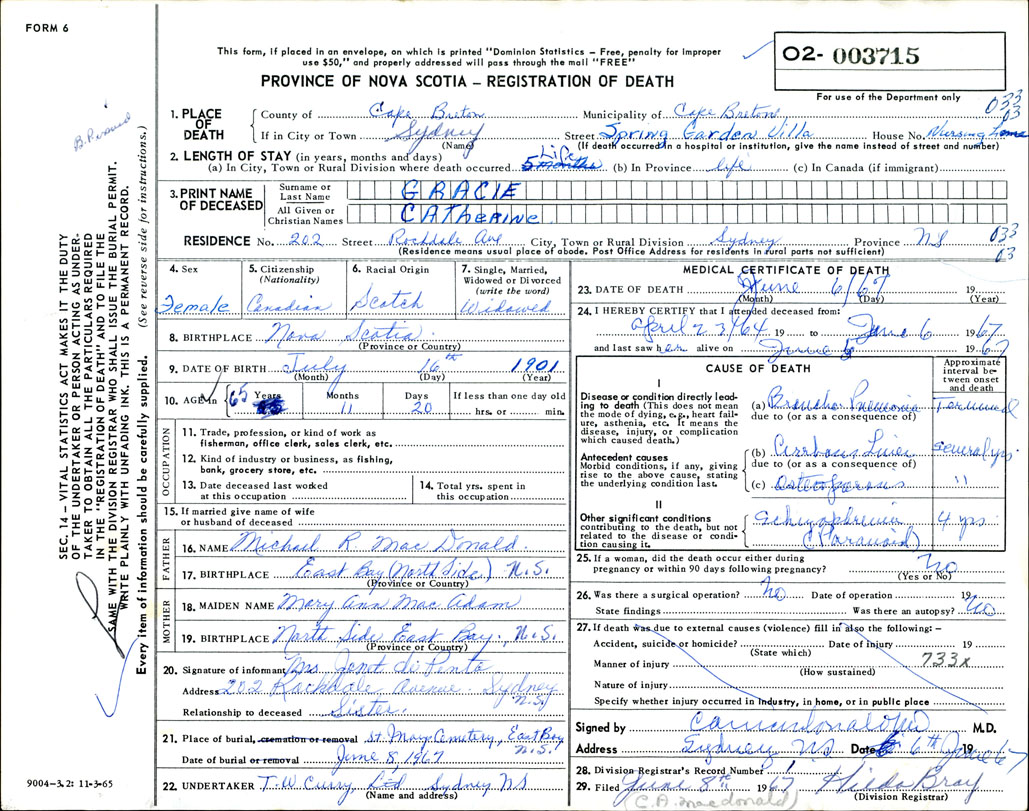 FORM 6
This form, if placed in an envelope, on which is printed "Dominion Statistics – Free, penalty for improper
use $50," and properly addressed will pass through the mail "FREE"
PROVINCE OF NOVA SCOTIA – REGISTRATION OF DEATH
02- 003715
For use of the Department only
033
03
1. PLACE OF DEATH County of Cape Breton Municipality of Cape Breton
If in City or Town Sydney Street Spring Garden Villa House No. Nursing Home
(Name) (If death occurred in a hospital or institution, give the name instead of street and number)
2. LENGTH OF STAY (in years, months and days)
(a) In City, Town or Rural Division where death occurred 5 months Life (b) In Province life (c) In Canada (if immigrant)
3. PRINT NAME OF DECEASED Surname or Last Name GRACIE
All Given or Christian Names CATHERINE
RESIDENCE No. 202 Street Rockdale Ave City, Town or Rural Division Sydney Province NS
(Residence means usual place of abode. Post Office Address for residents in rural parts not sufficient)
033
03
4. Sex Female
5. Citizenship (Nationality) Canadian
6. Racial Origin Scotch
7. Single, Married, Widowed or Divorced (write the word) Widowed
8. BIRTHPLACE Nova Scotia
(Province or Country)
9. DATE OF BIRTH July 16th 1901
(Month) (Day) (Year)
10. AGE in 65 Years Months 11 Days 20 If less than one day old hrs. or min.
OCCUPATION
11. Trade, profession, or kind of work as
fisherman, office clerk, sales clerk, etc.
12. Kind of industry or business, as fishing,
bank, grocery store, etc.
13. Date deceased last worked
at this occupation
14. Total yrs. spent in
this occupation
15. If married give name of wife
or husband of deceased
FATHER
16. NAME Michael R MacDonald
17. BIRTHPLACE East Bay (North Side) N.S.
(Province or Country)
MOTHER
18. MAIDEN NAME Mary Ann MacAdam
19. BIRTHPLACE North Side East Bay. N.S.
(Province or Country)
20. Signature of informant Mrs. Janet di Penta
Address 202 Rockdale Avenue. Sydney N.S.
Relationship to deceased Sister.
21. Place of burial, cremation or removal St. Mary Cemetery, East Bay N.S.
Date of burial or removal June 8, 1967
22. UNDERTAKER T. W. Curry Ltd Sydney NS
(Name and address)
MEDICAL CERTIFICATE OF DEATH
23. DATE OF DEATH June 6/67 19
(Month) (Day) (Year)
24. I HEREBY CERTIFY that I attended deceased from:
April 23/64 19 to June 6 1967
and last saw her alive on June 1967
CAUSE OF DEATH
Approximate interval between onset and death
I
Disease or condition directly leading to death (This does not
mean the mode of dying, e.g., heart failure, asthenia, etc. It means the
disease, injury, or complication
which caused death.)
(a) Broncho Pneumonia Terminal
due to (or as a consequence of)
Antecedent causes
Morbid conditions, if any, giving
rise to the above cause, stating
the underlying condition last.
(b) Cirrhosis Liver Several yrs.
due to (or as a consequence of)
(c) Osteoporosis "
II
Other significant conditions
contributing to the death, but not
related to the disease or condition causing it.
Schizophrenia 4 yrs.
(Paranoid)
25. If a woman, did the death occur either during
pregnancy or within 90 days following pregnancy? No
(Yes or No)
26. Was there a surgical operation? No Date of operation 19
State findings Was there an autopsy? No
27. If death was due to external causes (violence) fill in also the following: –
Accident, suicide or homicide? Date of injury 19
(State which)
Manner of injury 733x
(How sustained)
Nature of injury
Specify whether injury occurred in industry, in home, or in public place
Signed by M.D.
Address Sydney NS Date 6th June 1967
28. Division Registrar's Record Number
29. Filed June 8th 1967 Hilda Bray
(Division Registrar)
C.A. MacDonald
SEC. 14 – VITAL STATISTICS ACT MAKES IT THE DUTY
OF THE UNDERTAKER OR PERSON ACTING AS UNDER-
TAKER TO OBTAIN ALL THE PARTICULARS REQUIRED
IN THE "REGISTRATION OF DEATH" AND TO FILE THE
SAME WITH THE DIVISION REGISTRAR WHO SHALL ISSUE THE BURIAL PERMIT.
WRITE PLAINLY WITH UNFADING INK. THIS IS A PERMANENT RECORD.
Every item of information should be carefully supplied. (See reverse side for instructions.)
9004-3.2: 11-3-65